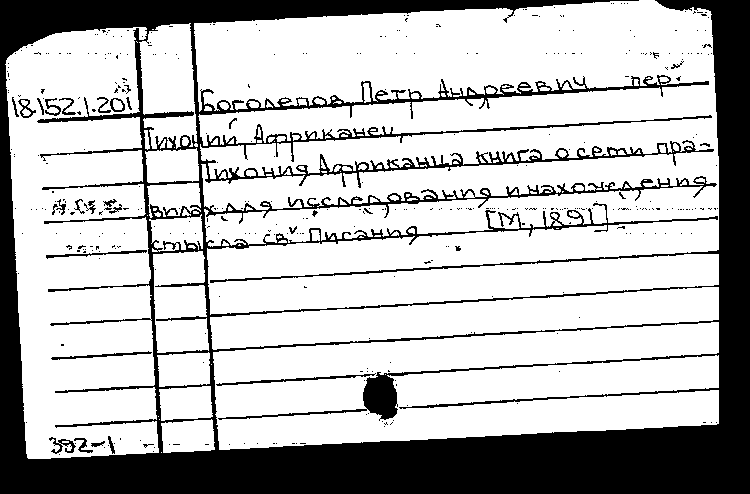 18.152.1.201 Боголепов, Петр Андреевич пер.
Тихоний, Африканец,
Тихония Африканца книга о сети пра-
вилах для исследования и нахождения
смысла св. Писания [М., 1891]
392-1